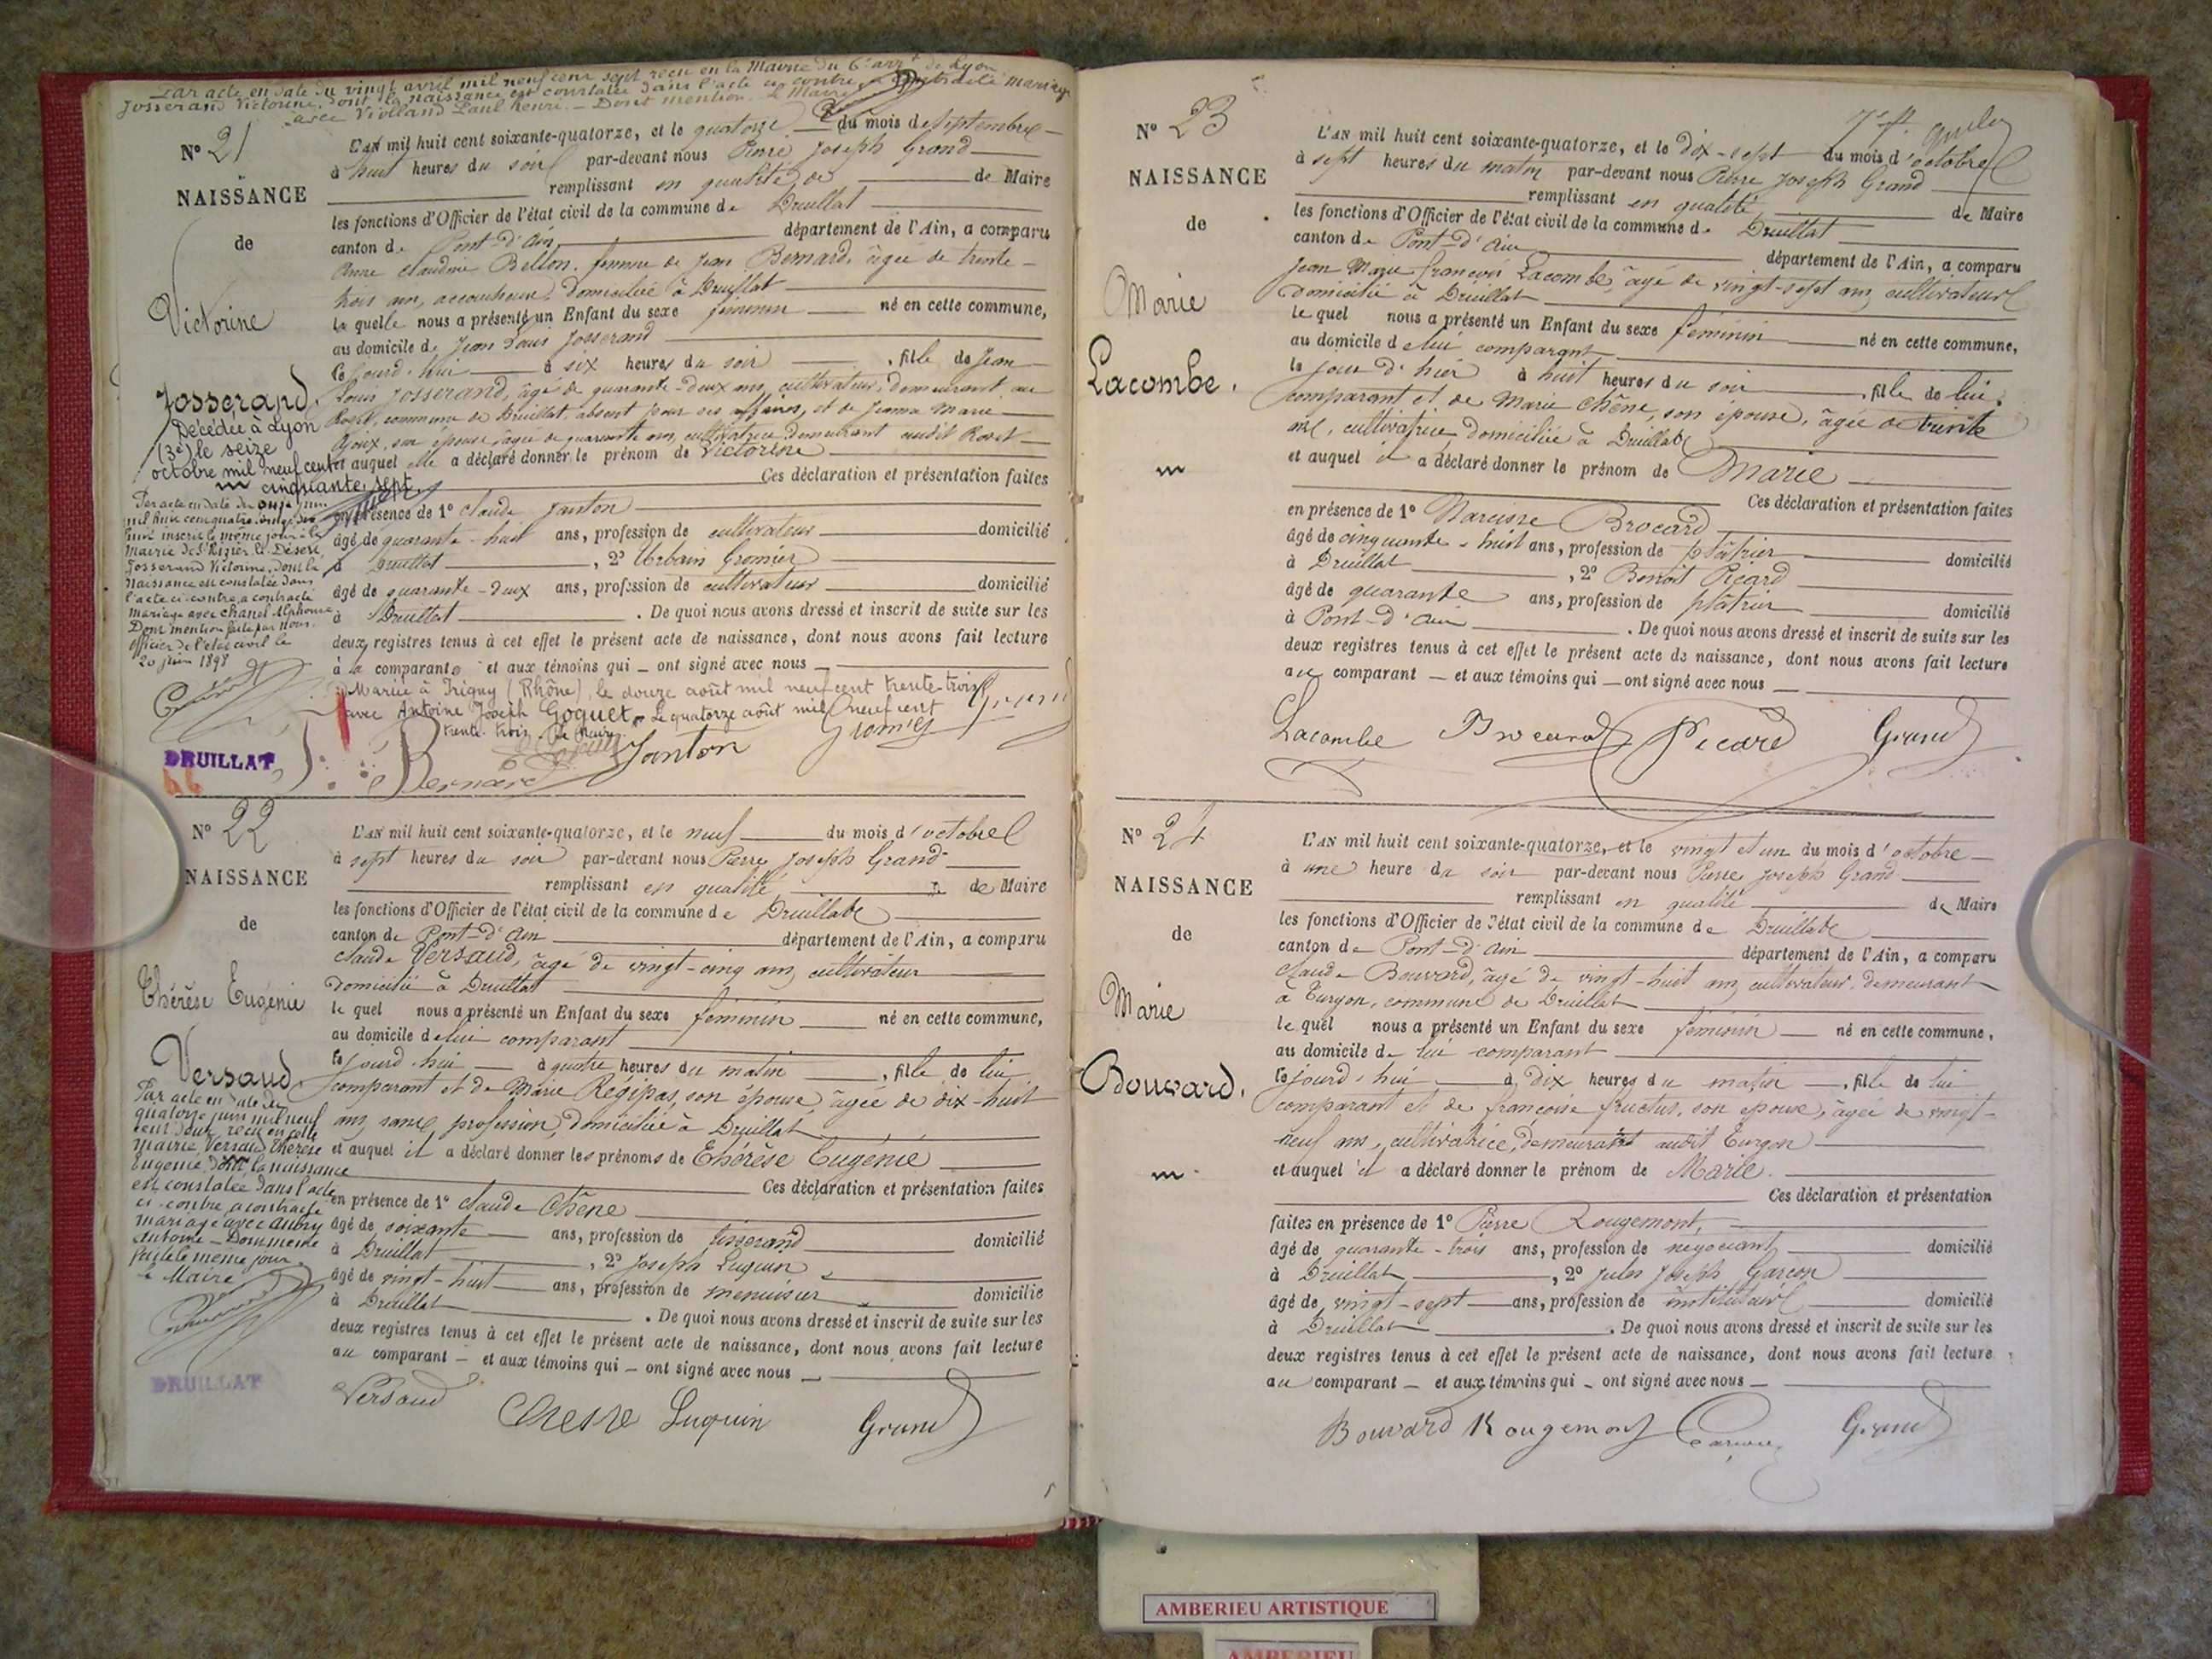 Par acte en date du vingt avril mil neuf cent sept reçu en la Mairie du 6e arrt de Lyon
Josserand Victorine, dont la naissance est constatée dans l'acte ci-contre a contracté mariage
avec Violland Paul Henri. — Dont mention. Le Maire
N° 21
NAISSANCE
de
Victorine
Josserand.
Décédée à Lyon
(3e) le seize
octobre mil neuf cent
cinquante sept.
Par acte en date du onze juin
mil huit cent quatre vingt dix
huit inscrit le même jour à la
Mairie de St Rizier le Désert,
Josserand Victorine, dont la
naissance est constatée dans
l'acte ci-contre, a contracté
mariage avec Chanel Alphonse
Dont mention faite par nous
officier de l'état civil le
20 juin 1898
DRUILLAT
L'AN mil huit cent soixante-quatorze, et le quatorze du mois de septembre
à huit heures du soir par-devant nous Pierre Joseph Grand
remplissant en qualité de de Maire
les fonctions d'Officier de l'état civil de la commune de Druillat
canton de Pont-d'Ain département de l'Ain, a comparu
Anne Claudine Bellon, femme de Jean Bernard, âgée de trente-
trois ans, accoucheuse, domiciliée à Druillat
la quelle nous a présenté un Enfant du sexe féminin né en cette commune,
au domicile de Jean Louis Josserand
ce jourd'hui à six heures du soir , fille de Jean
Louis Josserand, âgé de quarante-deux ans, cultivateur, demeurant au
Roset, commune de Druillat, absent pour ses affaires, et de Jeanne Marie
Goux, son épouse, âgée de quarante ans, cultivatrice demeurant audit Roset
et auquel elle a déclaré donner le prénom de Victorine
Ces déclaration et présentation faites
en présence de 1° Claude Janton
âgé de quarante-huit ans, profession de cultivateur domicilié
à Druillat , 2° Urbain Gromier
âgé de quarante-deux ans, profession de cultivateur domicilié
à Druillat . De quoi nous avons dressé et inscrit de suite sur les
deux registres tenus à cet effet le présent acte de naissance, dont nous avons fait lecture
à la comparante et aux témoins qui ont signé avec nous
Mariée à Irigny (Rhône), le douze août mil neuf cent trente-trois
avec Antoine Joseph Goguet. Le quatorze août mil neuf cent
trente trois. Le Maire
Bernard Janton Gromier Grand
N° 22
NAISSANCE
de
Thérèse Eugénie
Versaud.
Par acte en date du
quatorze juin mil neuf
cent douze reçu en cette
mairie Versaud Thérèse
Eugénie, dont la naissance
est constatée dans l'acte
ci-contre, a contracté
mariage avec Aubry
Antoine — Dont mention
faite le même jour.
Le Maire
DRUILLAT
L'AN mil huit cent soixante-quatorze, et le neuf du mois d'octobre
à sept heures du soir par-devant nous Pierre Joseph Grand
remplissant en qualité de Maire
les fonctions d'Officier de l'état civil de la commune de Druillat
canton de Pont-d'Ain département de l'Ain, a comparu
Claude Versaud, âgé de vingt-cinq ans, cultivateur
domicilié à Druillat
le quel nous a présenté un Enfant du sexe féminin né en cette commune,
au domicile de lui comparant
ce jourd'hui à quatre heures du matin , fille de lui
comparant et de Marie Régipas, son épouse, âgée de dix-huit
ans, sans profession, domiciliée à Druillat
et auquel il a déclaré donner les prénoms de Thérèse Eugénie
Ces déclaration et présentation faites
en présence de 1° Claude Chêne
âgé de soixante ans, profession de tisserand domicilié
à Druillat , 2° Joseph Luquin
âgé de vingt-huit ans, profession de menuisier domicilié
à Druillat . De quoi nous avons dressé et inscrit de suite sur les
deux registres tenus à cet effet le présent acte de naissance, dont nous avons fait lecture
au comparant et aux témoins qui ont signé avec nous
Versaud Chesne Luquin Grand
N° 23
NAISSANCE
de
Marie
Lacombe.
L'AN mil huit cent soixante-quatorze, et le dix-sept du mois d'octobre
à sept heures du matin par-devant nous Pierre Joseph Grand
remplissant en qualité de Maire
les fonctions d'Officier de l'état civil de la commune de Druillat
canton de Pont-d'Ain département de l'Ain, a comparu
Jean Marie François Lacombe, âgé de vingt-sept ans, cultivateur
domicilié à Druillat
le quel nous a présenté un Enfant du sexe féminin né en cette commune,
au domicile de lui comparant
le jour d'hier à huit heures du soir , fille de lui
comparant et de Marie Chêne, son épouse, âgée de trente
ans, cultivatrice, domiciliée à Druillat
et auquel il a déclaré donner le prénom de Marie
Ces déclaration et présentation faites
en présence de 1° Narcisse Brocard
âgé de cinquante-huit ans, profession de plâtrier domicilié
à Druillat , 2° Benoît Picard
âgé de quarante ans, profession de plâtrier domicilié
à Pont-d'Ain . De quoi nous avons dressé et inscrit de suite sur les
deux registres tenus à cet effet le présent acte de naissance, dont nous avons fait lecture
au comparant et aux témoins qui ont signé avec nous
Lacombe Brocard Picard Grand
N° 24
NAISSANCE
de
Marie
Bouvard.
L'AN mil huit cent soixante-quatorze, et le vingt et un du mois d'octobre
à une heure du soir par-devant nous Pierre Joseph Grand
remplissant en qualité de Maire
les fonctions d'Officier de l'état civil de la commune de Druillat
canton de Pont-d'Ain département de l'Ain, a comparu
Claude Bouvard, âgé de vingt-huit ans, cultivateur, demeurant
à Turgon, commune de Druillat
le quel nous a présenté un Enfant du sexe féminin né en cette commune,
au domicile de lui comparant
ce jourd'hui à dix heures du matin , fille de lui
comparant et de Françoise Fructus, son épouse, âgée de vingt-
neuf ans, cultivatrice, demeurant audit Turgon
et auquel il a déclaré donner le prénom de Marie
Ces déclaration et présentation
faites en présence de 1° Pierre Rougemont,
âgé de quarante-trois ans, profession de négociant domicilié
à Druillat , 2° Jules Joseph Garçon
âgé de vingt-sept ans, profession de instituteur domicilié
à Druillat . De quoi nous avons dressé et inscrit de suite sur les
deux registres tenus à cet effet le présent acte de naissance, dont nous avons fait lecture
au comparant et aux témoins qui ont signé avec nous
Bouvard Rougemont Garçon Grand
AMBERIEU ARTISTIQUE
AMBERIEU